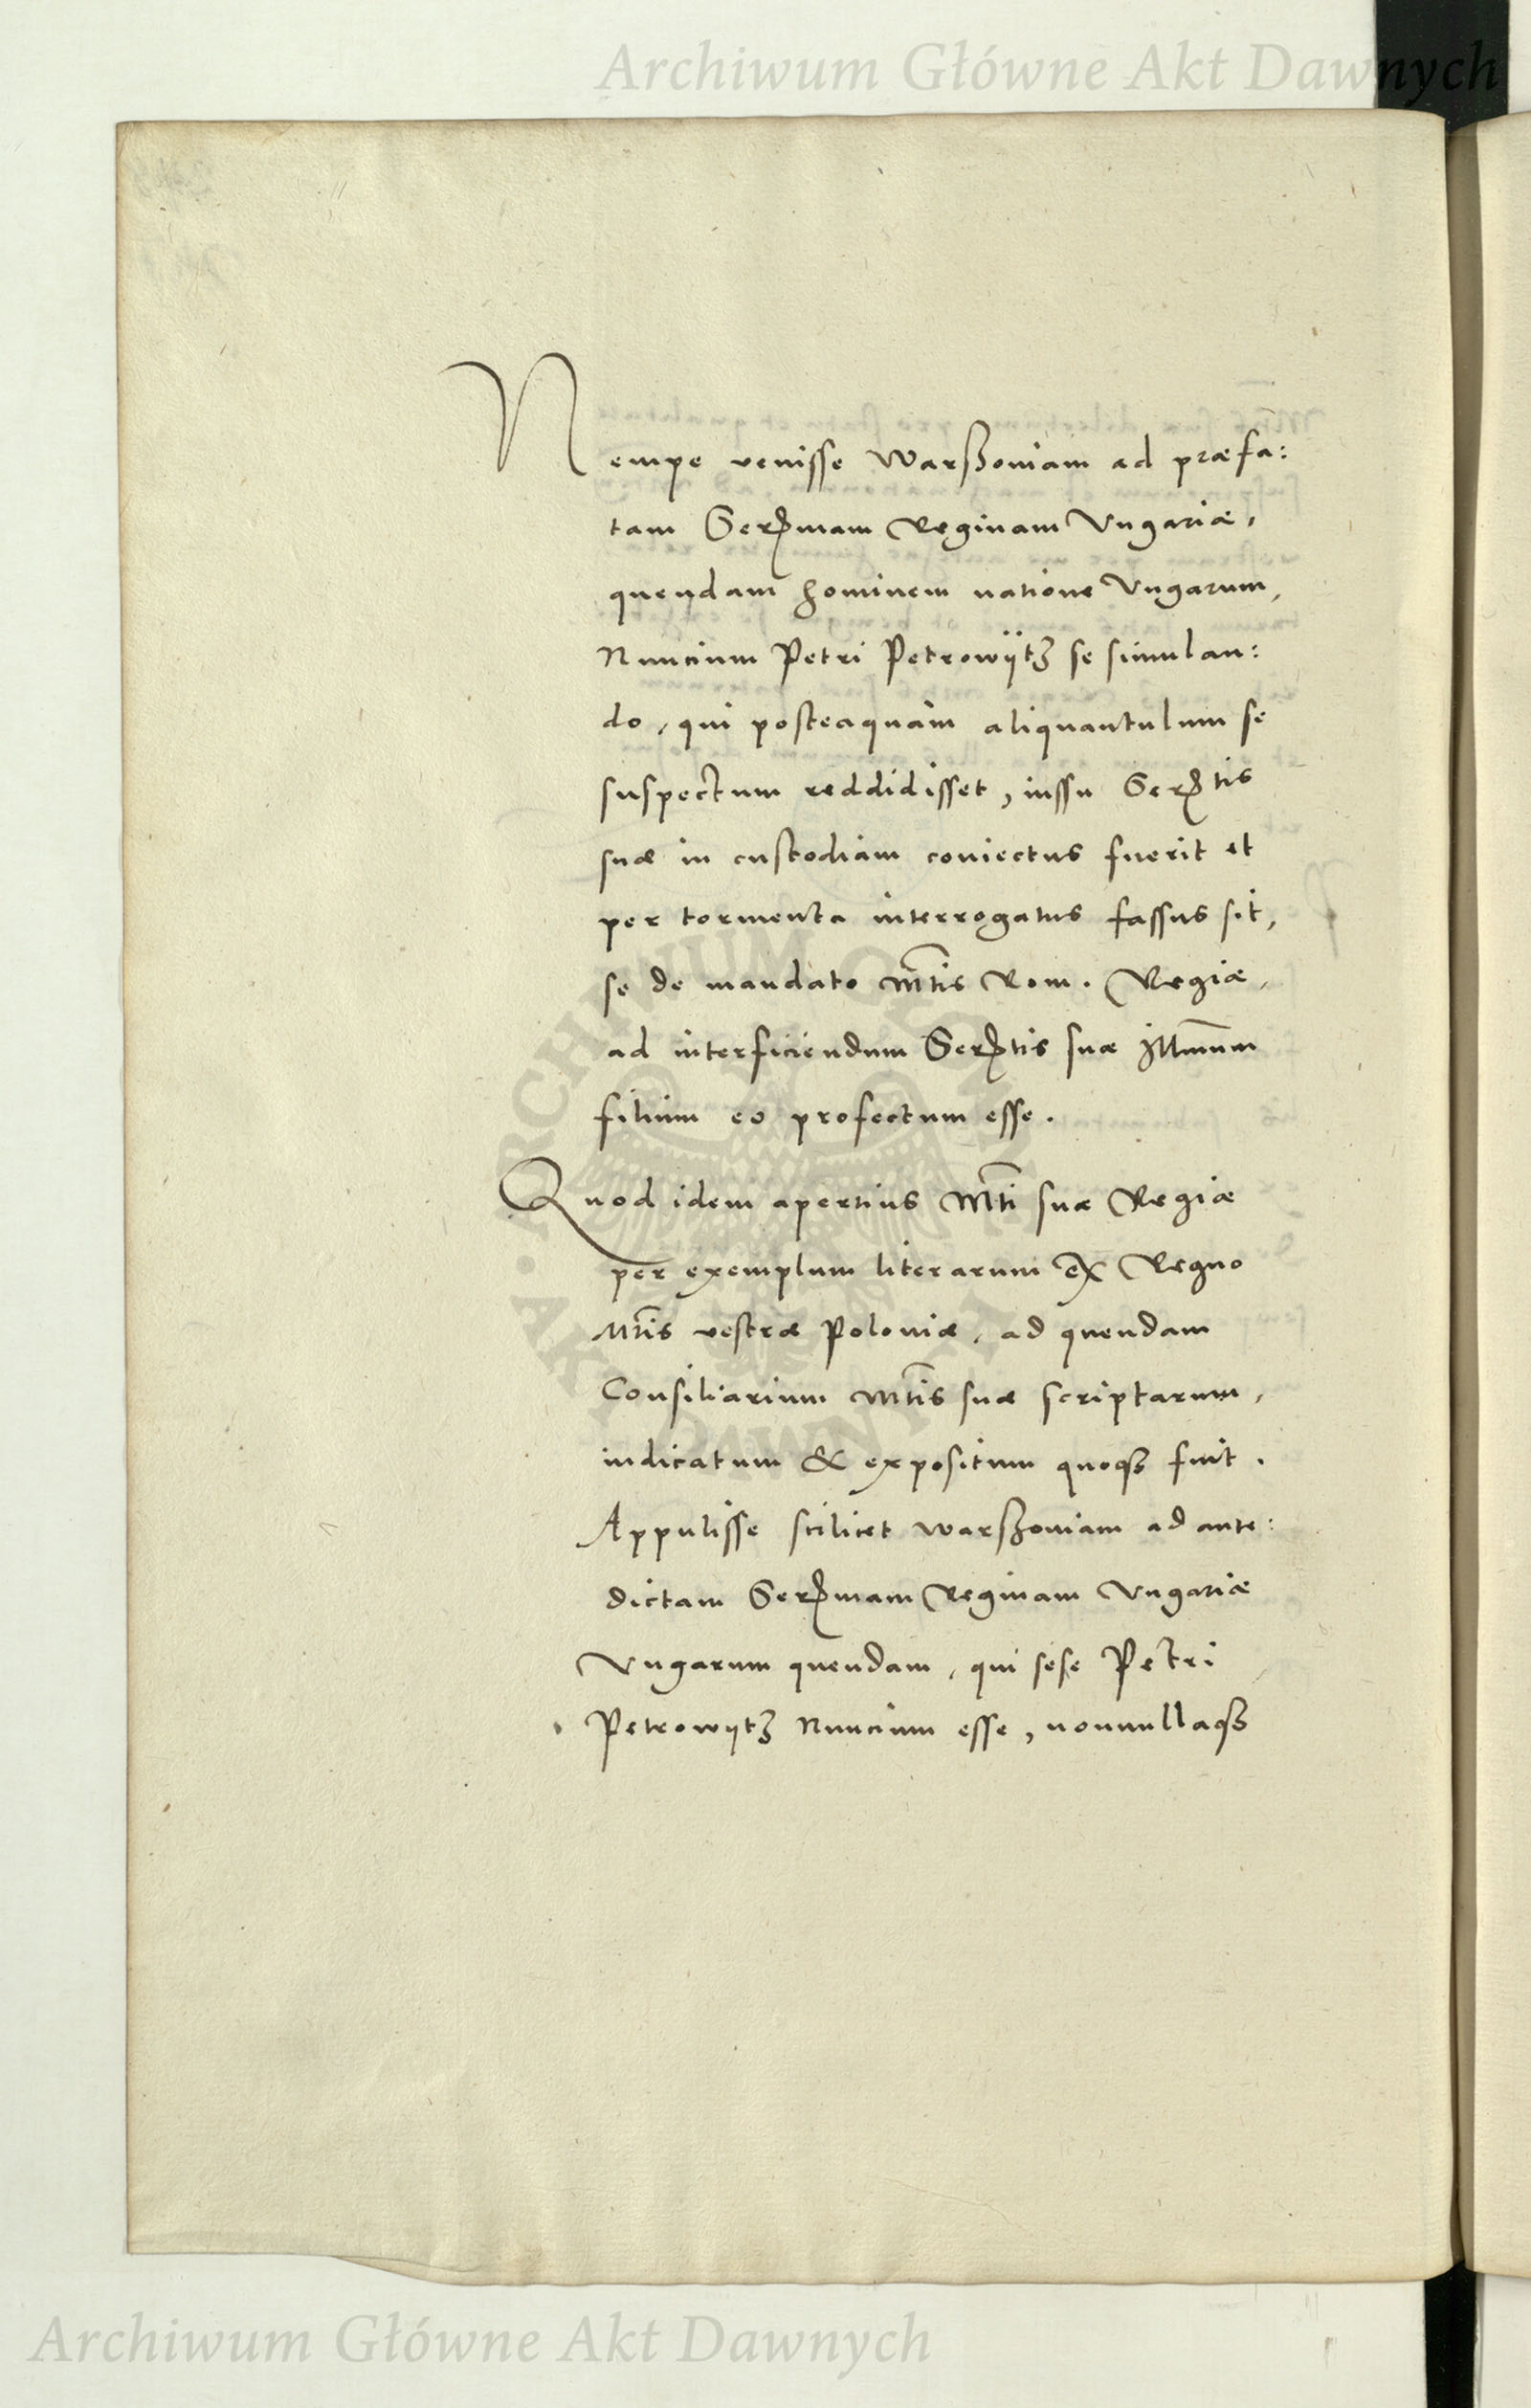 Archiwum Główne Akt Dawnych
Nempe venisse Warßoviam ad præfa:
tam Serᵉⁿmam Reginam Vngariæ,
quendam hominem natione Vngarum,
Nuncium Petri Petrowÿtz se simulan:
do, qui posteaquam aliquantulum se
suspectum reddidisset, iussu Serᵉⁿtis
suæ in custodiam coniectus fuerit et
per tormenta interrogatus fassus sit,
se de mandato Mtis Rom. Regiæ,
ad interficiendum Serᵉⁿtis suæ Illmum
filium eo profectum esse.
Quod idem apertius Mti suæ Regiæ
per exemplum literarum ex Regno
Mtis vestræ Poloniæ, ad quendam
Consiliarium Mtis suæ scriptarum,
indicatum & expositum quoqз fuit.
Appulisse scilicet Warßoviam ad ante:
dictam Serᵉⁿmam Reginam Vngariæ
Vngarum quendam, qui sese Petri
Petrowytz Nuncium esse, nonnullaqз
ARCHIWUM GŁÓWNE AKT DAWNYCH
Archiwum Główne Akt Dawnych